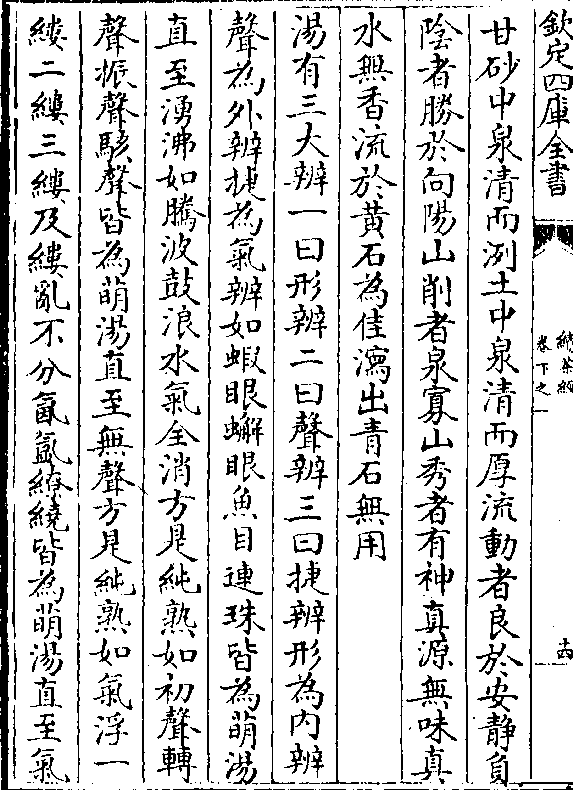 欽定四庫全書
續茶經
卷下之一
十四
甘砂中泉清而洌土中泉清而厚流動者良於安靜負
陰者勝於向陽山削者泉寡山秀者有神真源無味真
水無香流於黃石為佳瀉出青石無用
湯有三大辨一曰形辨二曰聲辨三曰捷辨形為內辨
聲為外辨捷為氣辨如蝦眼蠏眼魚目連珠皆為萌湯
直至湧沸如騰波鼓浪水氣全消方是純熟如初聲轉
聲振聲駭聲皆為萌湯直至無聲方是純熟如氣浮一
縷二縷三縷及縷亂不分氤氲繚繞皆為萌湯直至氣